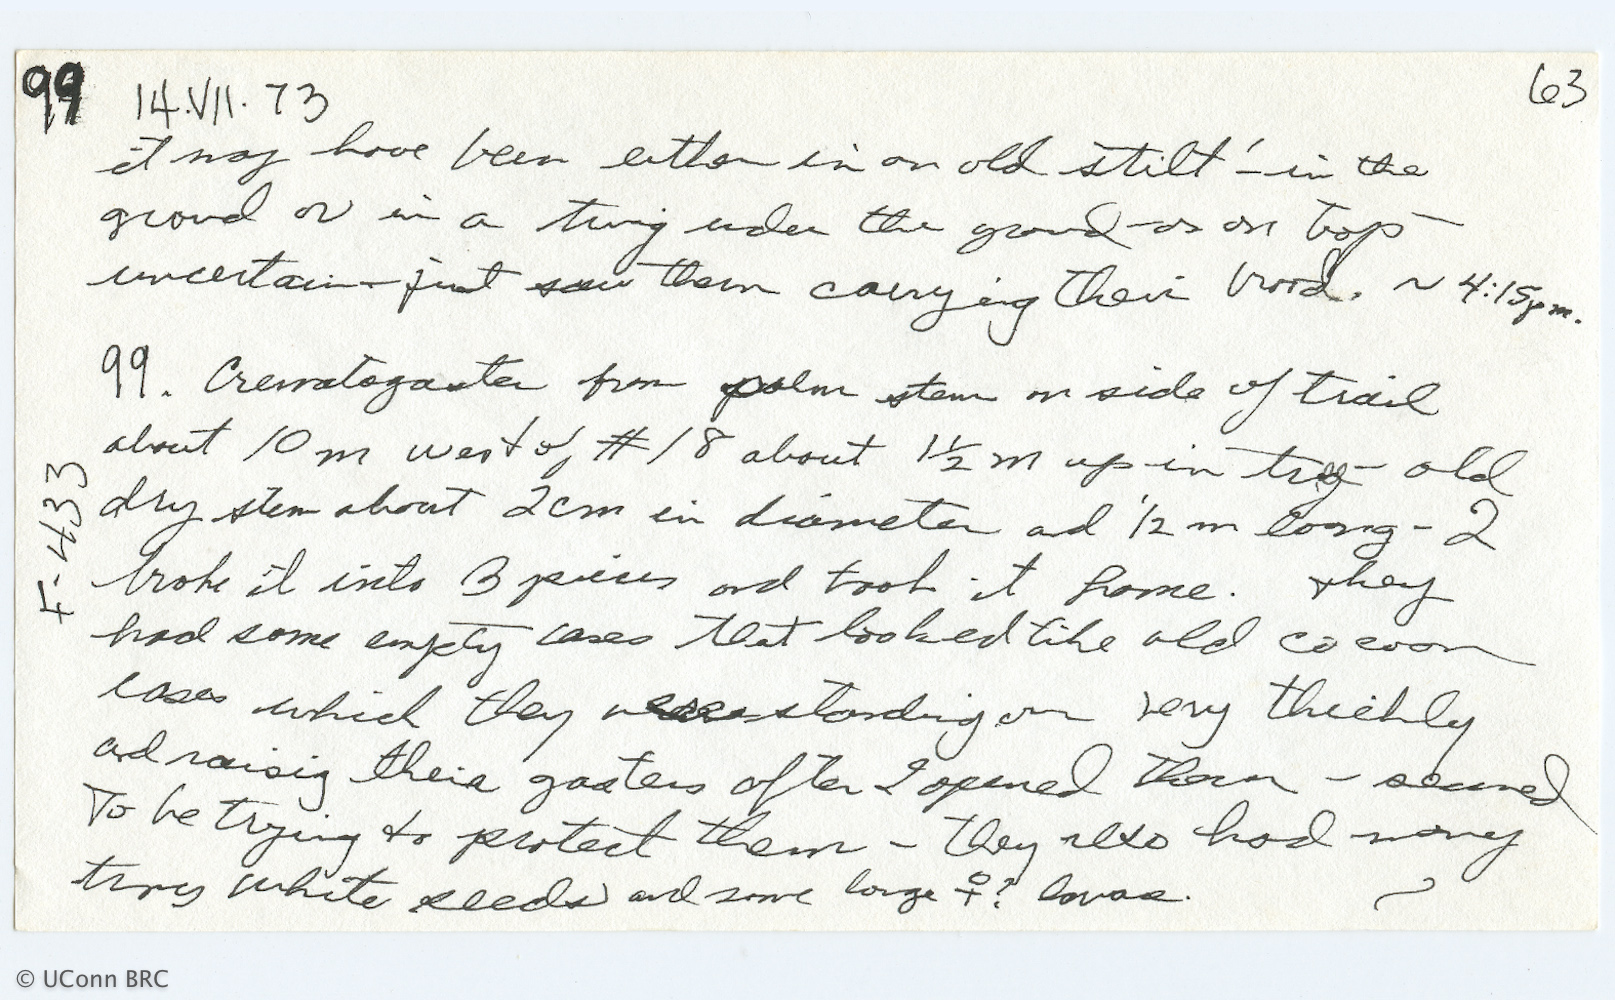 99 14.VII.73 63
it may have been either in an old stilt - in the
ground or in a twig under the ground - or on top -
uncertain - just saw them carrying their brood. ~ 4:15pm.
99. Crematogaster from palm stem on side of trail
about 10 m west of #18 about 1½ m up in tree - old
dry stem about 2cm in diameter and ½ m long - I
broke it into 3 pieces and took it home. They
had some empty cases that looked like old cocoon
cases which they were standing on very thickly
and raising their gasters after I opened them - seemed
To be trying to protect them - they also had many
tiny white seeds and some large ♀? larvae.
F-433
© UConn BRC